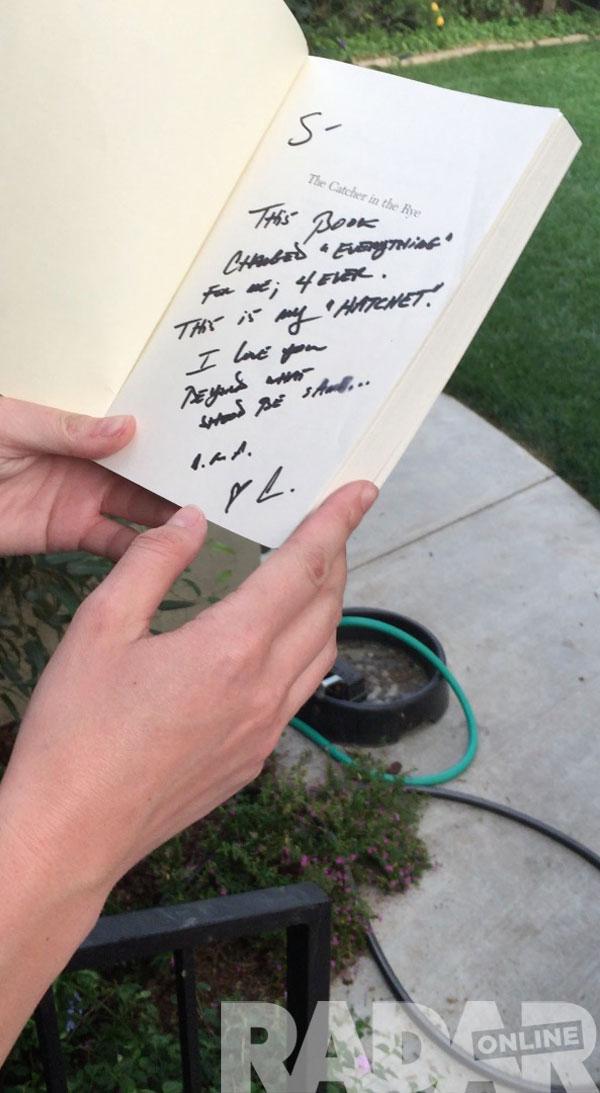 S-
The Catcher in the Rye
THIS BOOK
CHANGED "EVERYTHING"
FOR ME; 4 EVER.
THIS IS MY "HATCHET."
I love you
BEYOND WHAT
SHOULD BE SAID...
C.
RADAR
ONLINE